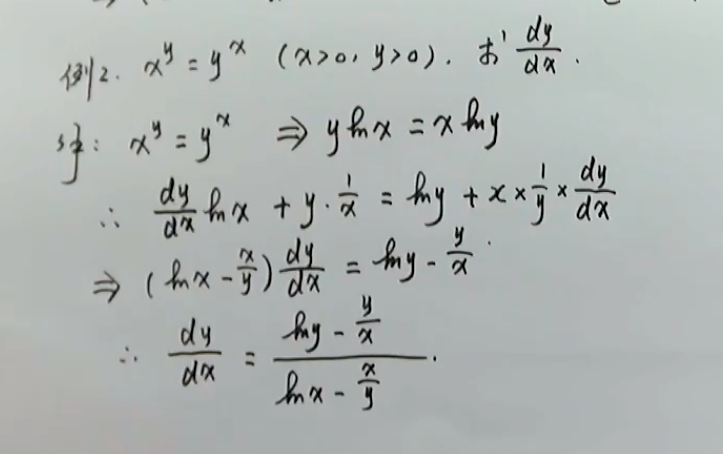 例2. x^y = y^x (x>0, y>0). 求 dy/dx.
解: x^y = y^x ⇒ y ln x = x ln y
∴ dy/dx ln x + y · 1/x = ln y + x × 1/y × dy/dx
⇒ (ln x - x/y) dy/dx = ln y - y/x.
∴ dy/dx = (ln y - y/x)/(ln x - x/y).